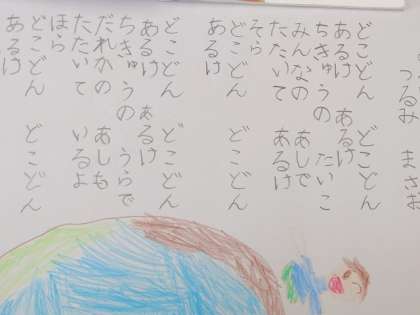 つるみ まさお
どこどん どこどん
あるけ あるけ
ちきゅうの たいこ
みんなの あしで
たたいて あるけ
そら
どこどん どこどん
あるけ
どこどん どこどん
あるけ あるけ
ちきゅうの うらで
だれかの あしも
たたいて いるよ
ほら
どこどん どこどん
あるけ